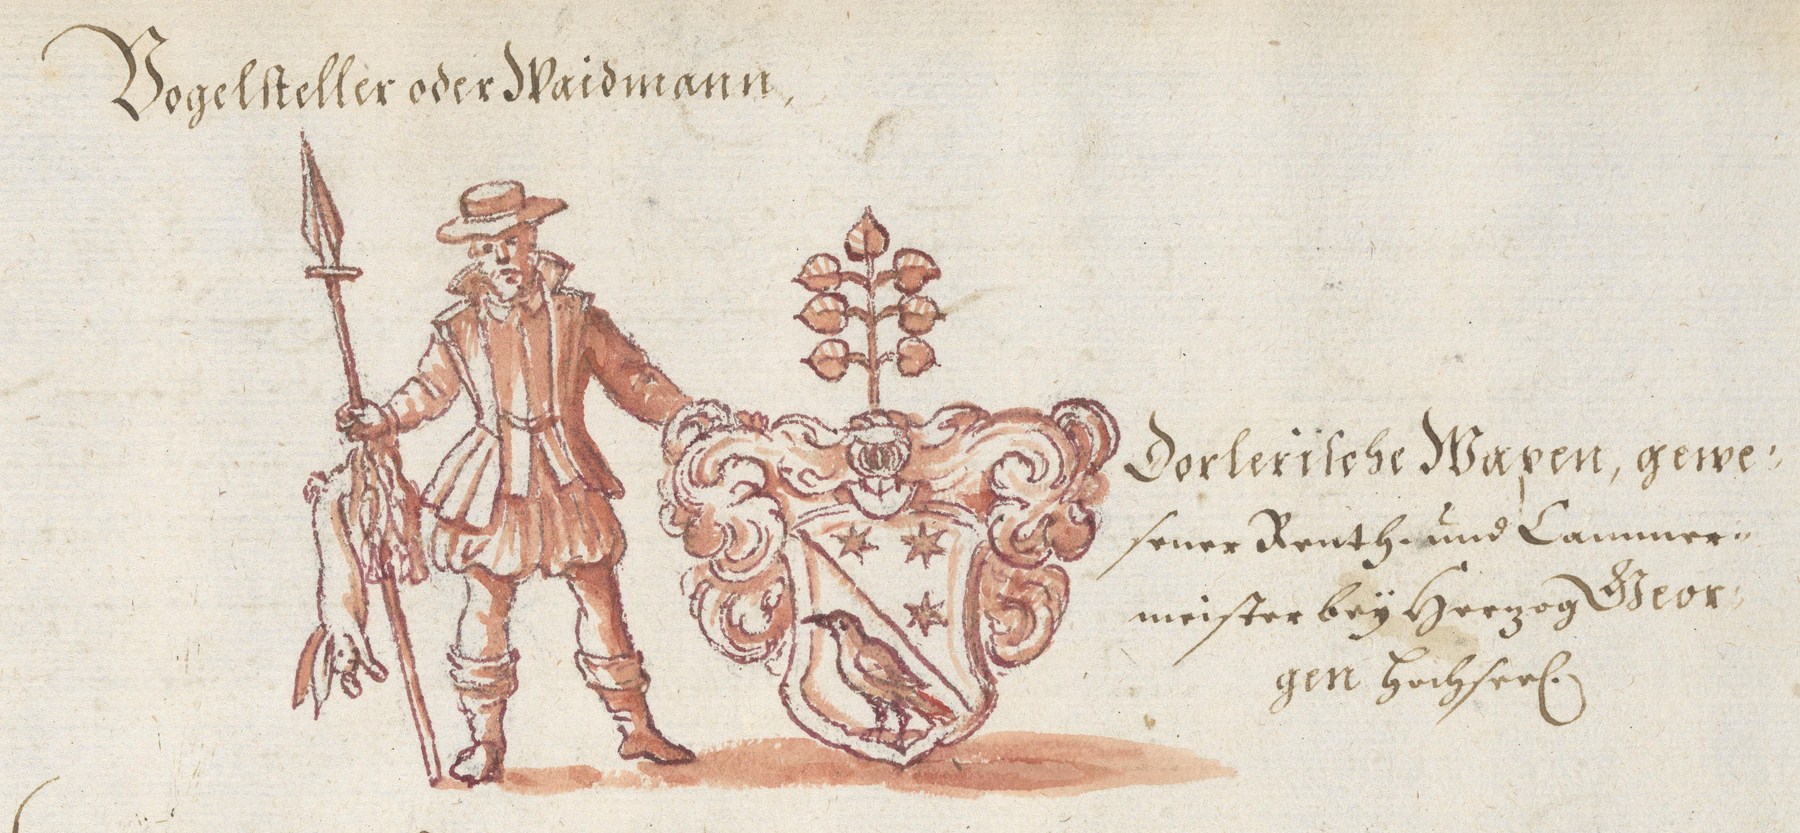 Vogelsteller oder Waidmann,
Dorlerische Wapen, gewe:
sener Renth- und Cammer-
meister beÿ Herzog Geor:
gen Hochseel.